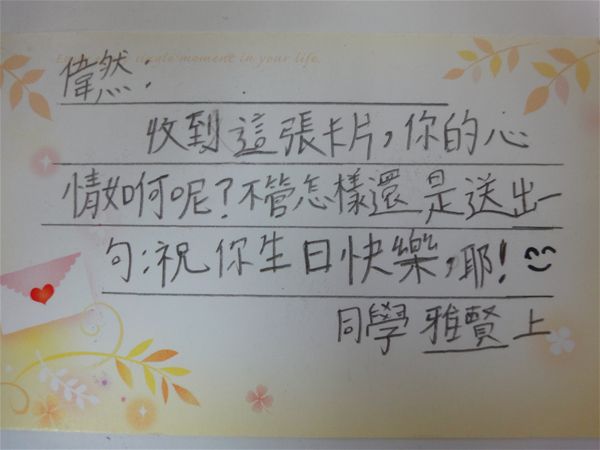 moment in your life.
偉然:
收到這張卡片,你的心
情如何呢?不管怎樣還是送出一
句:祝你生日快樂,耶!
同學 雅賢 上